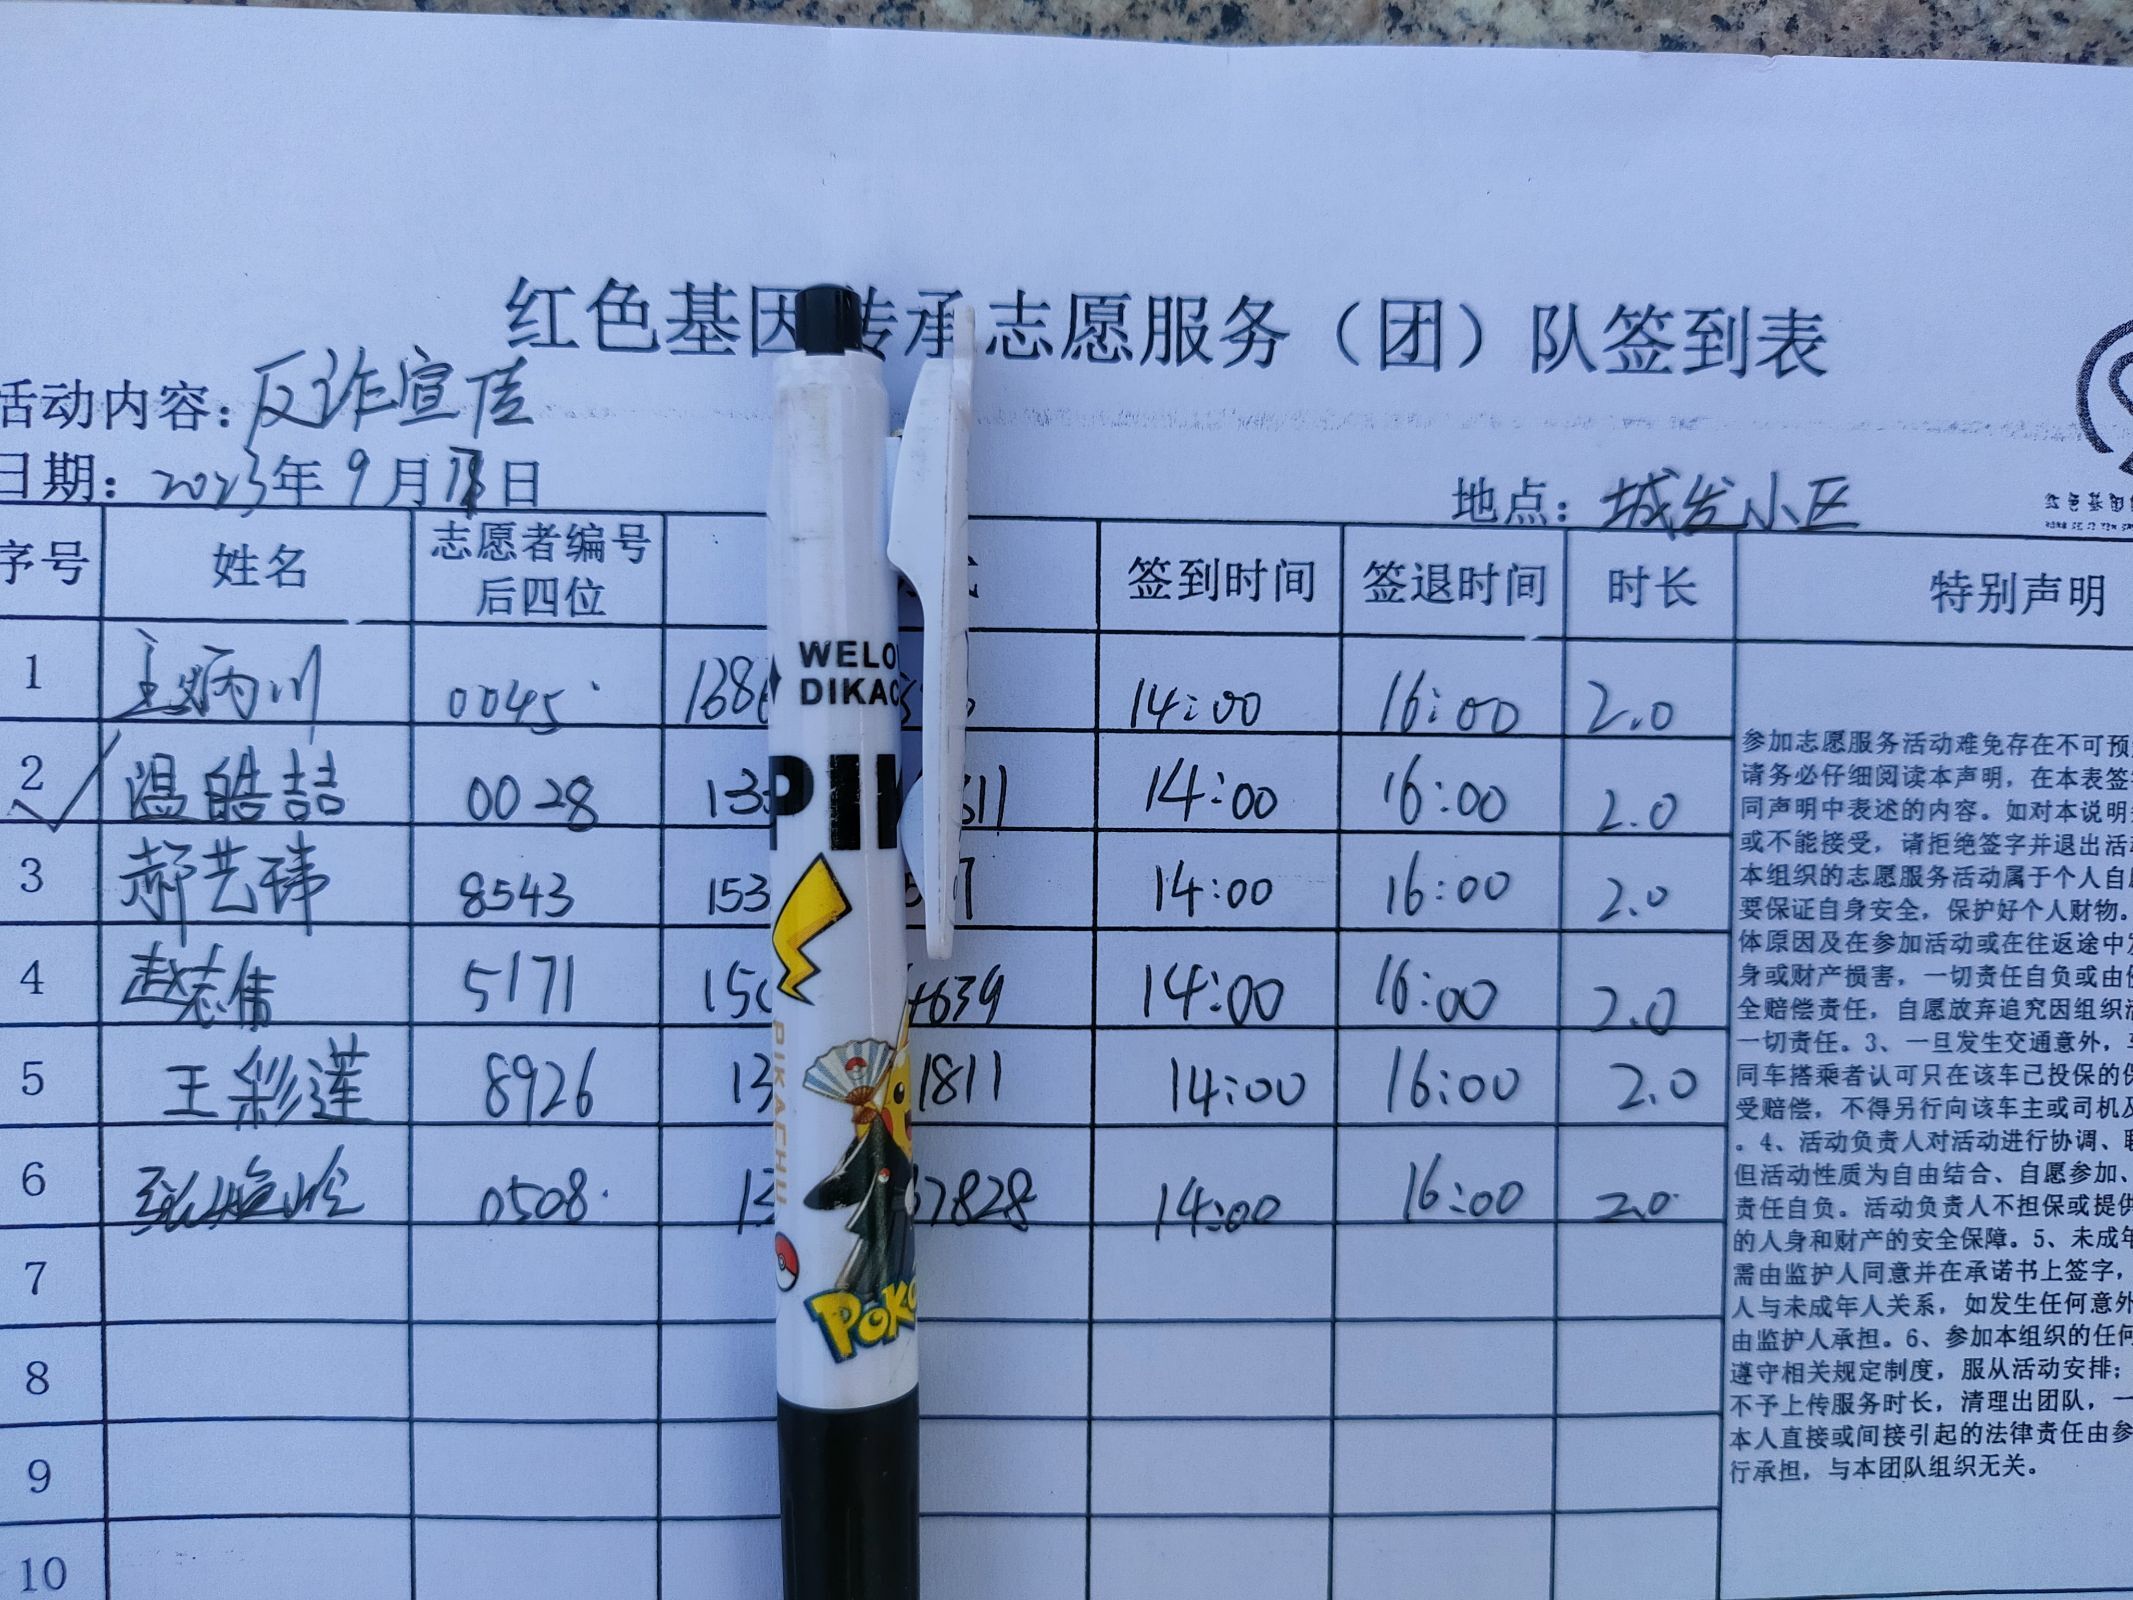 红色基因传承志愿服务（团）队签到表
活动内容：反诈宣传
日期：2023年9月日
地点：城发小区
序号 姓名 志愿者编号后四位 签到时间 签退时间 时长 特别声明
1 王炳川 0045 138 14:00 16:00 2.0
2 温皓喆 0028 13 811 14:00 16:00 2.0
3 郝艺玮 8543 153 14:00 16:00 2.0
4 赵志伟 5171 15 4639 14:00 16:00 2.0
5 王彩莲 8926 13 1811 14:00 16:00 2.0
6 0508 13 7828 14:00 16:00 2.0
7
8
9
10
参加志愿服务活动难免存在不可预
请务必仔细阅读本声明，在本表签
同声明中表述的内容。如对本说明
或不能接受，请拒绝签字并退出活
本组织的志愿服务活动属于个人自
要保证自身安全，保护好个人财物。
体原因及在参加活动或在往返途中
身或财产损害，一切责任自负或由
全赔偿责任，自愿放弃追究因组织
一切责任。3、一旦发生交通意外，
同车搭乘者认可只在该车已投保的
受赔偿，不得另行向该车主或司机
。4、活动负责人对活动进行协调、
但活动性质为自由结合、自愿参加、
责任自负。活动负责人不担保或提供
的人身和财产的安全保障。5、未成年
需由监护人同意并在承诺书上签字，
人与未成年人关系，如发生任何意外
由监护人承担。6、参加本组织的任何
遵守相关规定制度，服从活动安排；
不予上传服务时长，清理出团队，一
本人直接或间接引起的法律责任由参
行承担，与本团队组织无关。
WELO
DIKAC
PIK
PIKACHU
POK